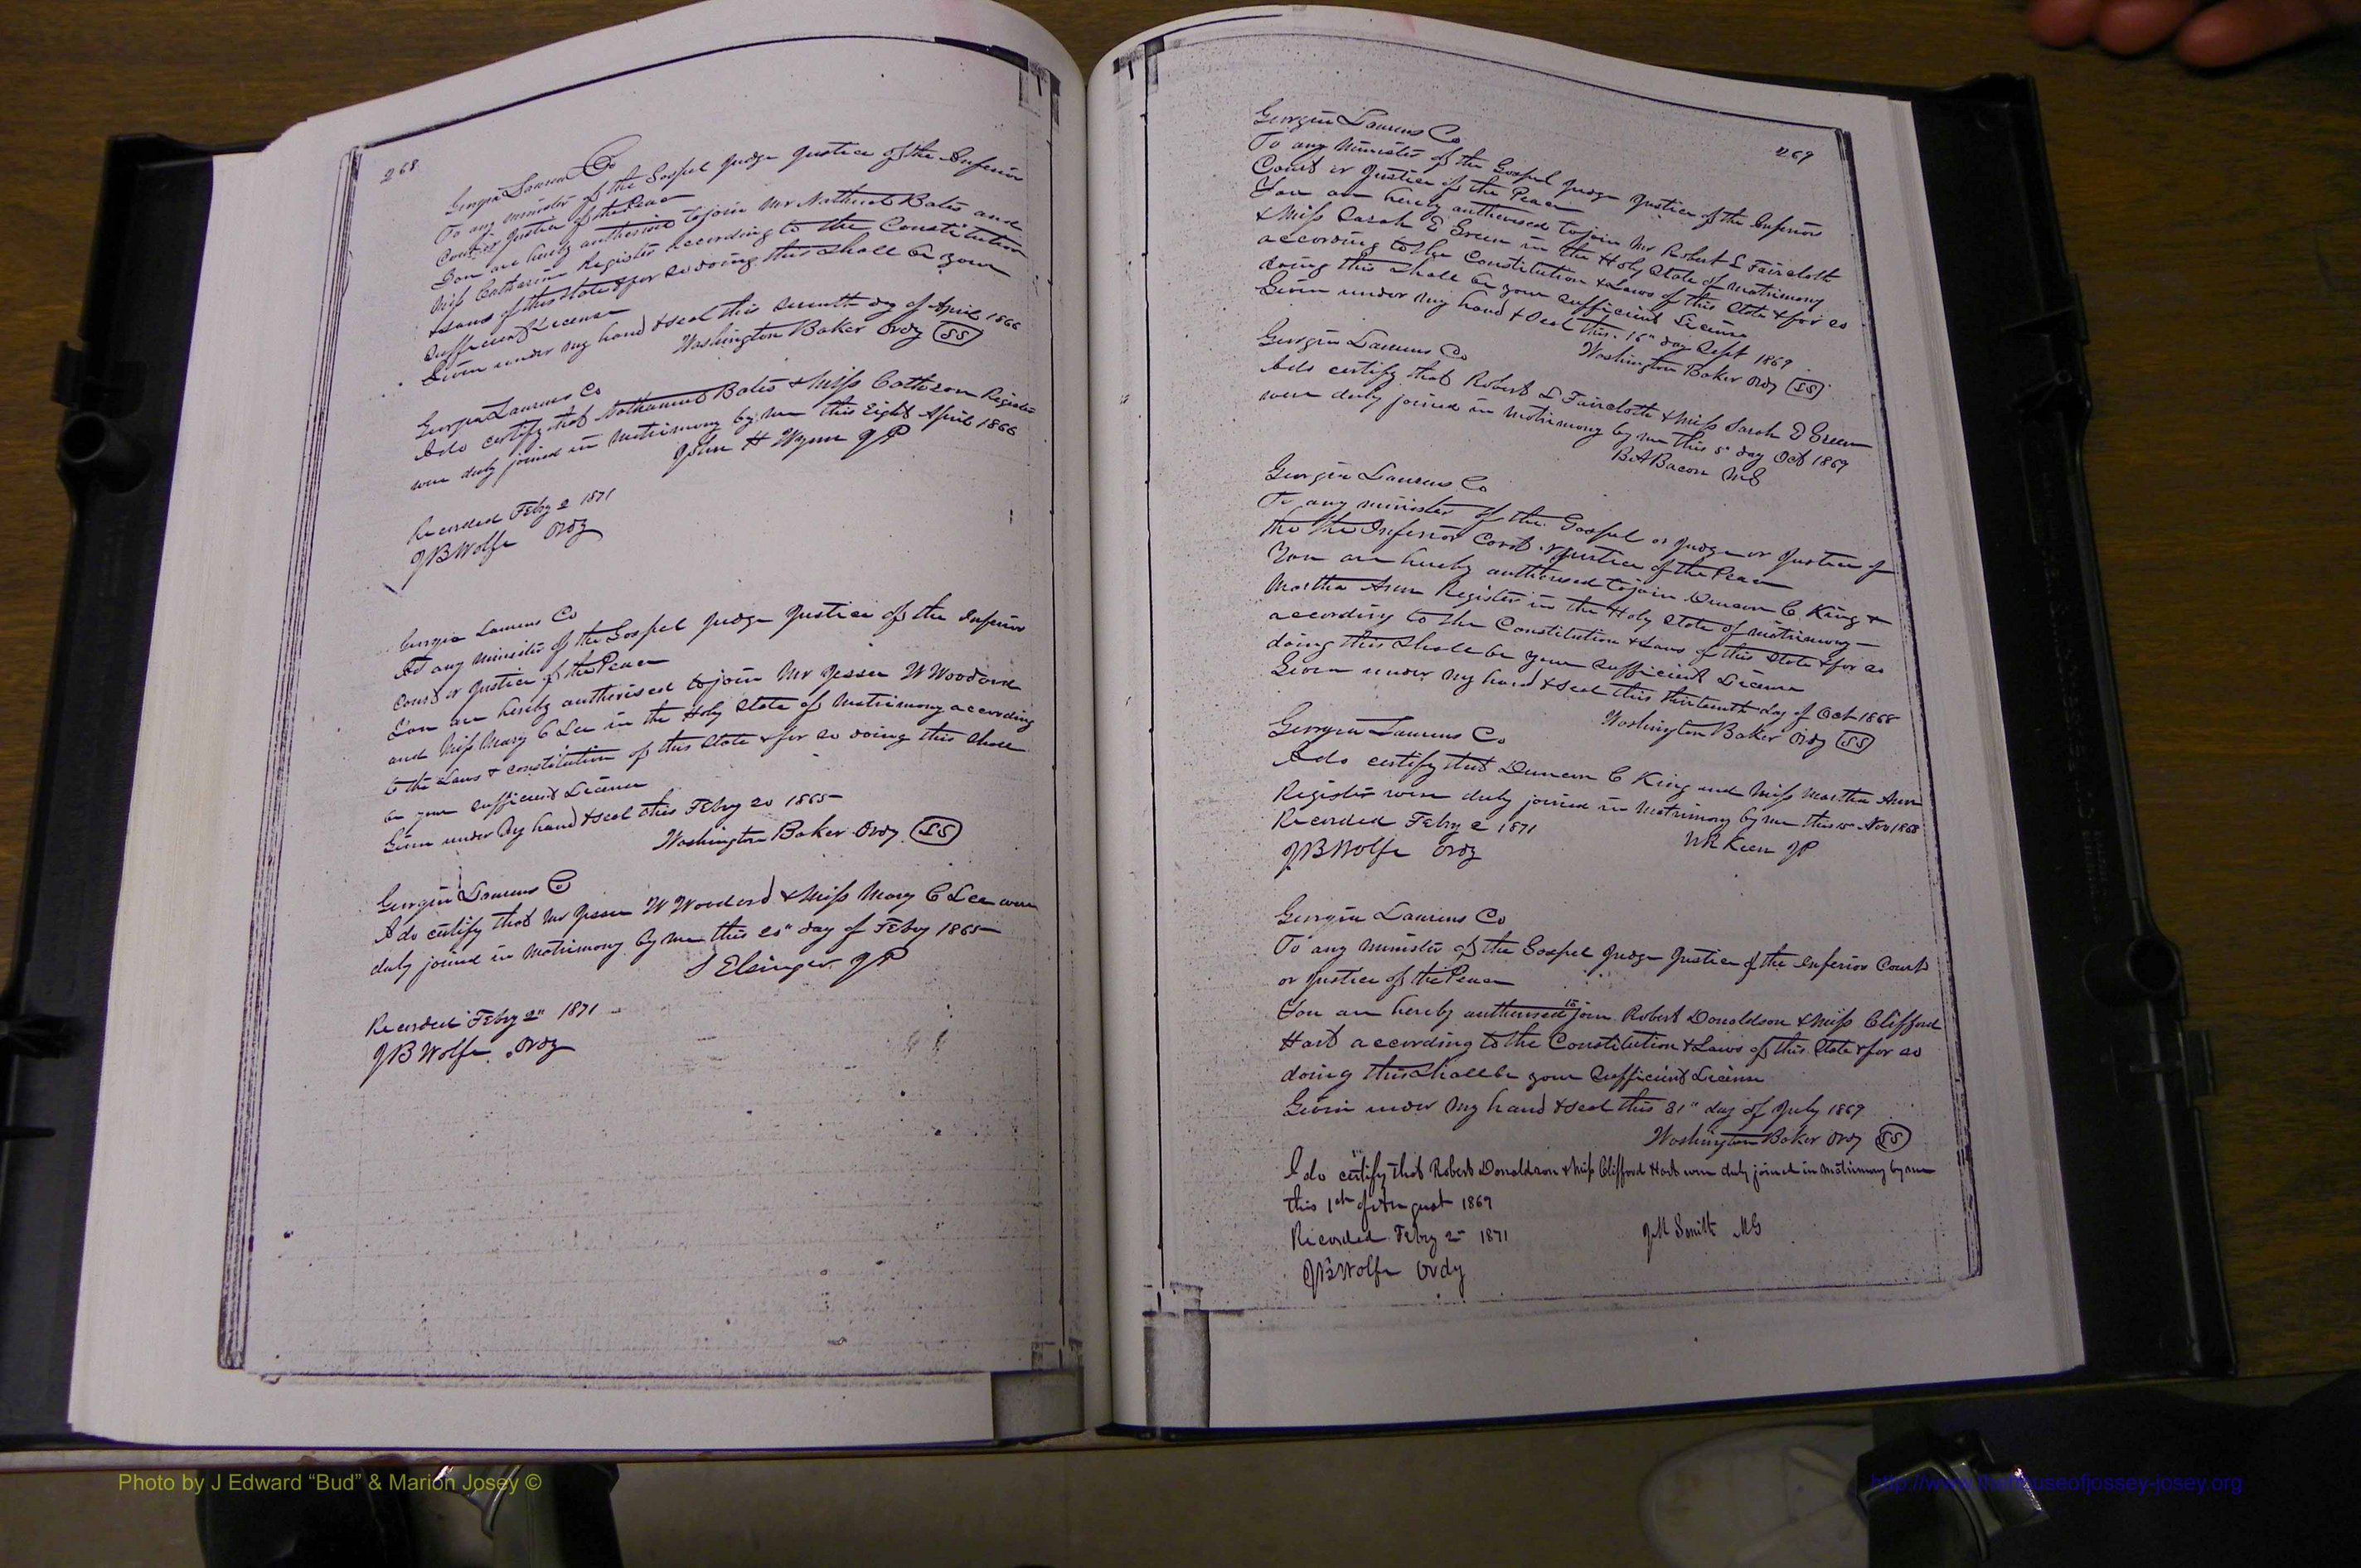 268
Georgia Laurens Co
To any minister of the Gospel Judge Justice of the Inferior
Court or Justice of the Peace
You are hereby authorised to join Mr Nathaniel Bates and
Miss Catharine Register according to the Constitution
& Laws of this State & for so doing this shall be your
sufficient License
Given under my hand & seal this seventh day of April 1866
Washington Baker Ordy (SS)
Georgia Laurens Co
I do certify that Nathaniel Bates & Miss Catharine Register
were duly joined in matrimony by me this Eight April 1866
John H Wynn JP
Recorded Feby 2 1871
JB Wolfe Ordy
Georgia Laurens Co
To any minister of the Gospel Judge Justice of the Inferior
Court or Justice of the Peace
You are hereby authorised to join Mr Jessee W Woodard
and Miss Mary C Lee in the Holy State of Matrimony according
to the Laws & constitution of this State & for so doing this shall
be your sufficient License
Given under my hand & seal this Feby 20 1865
Washington Baker Ordy (SS)
Georgia Laurens Co
I do certify that Mr Jessee W Woodard & Miss Mary C Lee were
duly joined in matrimony by me this day of Feby 1865
Elsinger JP
Recorded Feby 2" 1871
JB Wolfe Ordy
269
Georgia Laurens Co
To any Minister of the Gospel Judge Justice of the Inferior
Court or Justice of the Peace
You are hereby authorised to join Mr Robert L Faircloth
& Miss Sarah E Green in the Holy State of Matrimony
according to the Constitution & Laws of this State & for so
doing this shall be your sufficient License
Given under my hand & seal this 16" day Sept 1869
Washington Baker Ordy (SS)
Georgia Laurens Co
I do certify that Robert L Faircloth & Miss Sarah E Green
were duly joined in matrimony by me this 5" day Oct 1869
BA Bacon MG
Georgia Laurens Co
To any minister of the Gospel or Judge or Justice of
the the Inferior Court or Justice of the Peace
You are hereby authorised to join Duncan C King &
Martha Ann Register in the Holy State of matrimony
according to the Constitution & Laws of this State & for so
doing this shall be your sufficient License
Given under my hand & seal this thirteenth day of Oct 1868
Washington Baker Ordy (SS)
Georgia Laurens Co
I do certify that Duncan C King and Miss Martha Ann
Register were duly joined in Matrimony by me this Nov 1868
Recorded Feby 2 1871
WR Keen JP
JB Wolfe Ordy
Georgia Laurens Co
To any minister of the Gospel Judge Justice of the Inferior Court
or Justice of the Peace
You are hereby authorised to join Robert Donaldson & Miss Clifford
Hart according to the Constitution & Laws of this State & for so
doing this shall be your sufficient License
Given under my hand & seal this 31" day of July 1869
Washington Baker Ordy (SS)
I do certify that Robert Donaldson & Miss Clifford Hart were duly joined in matrimony by me
this 1st of August 1869
Recorded Feby 2" 1871
JM Smith MG
JB Wolfe Ordy
Photo by J Edward “Bud” & Marion Josey ©